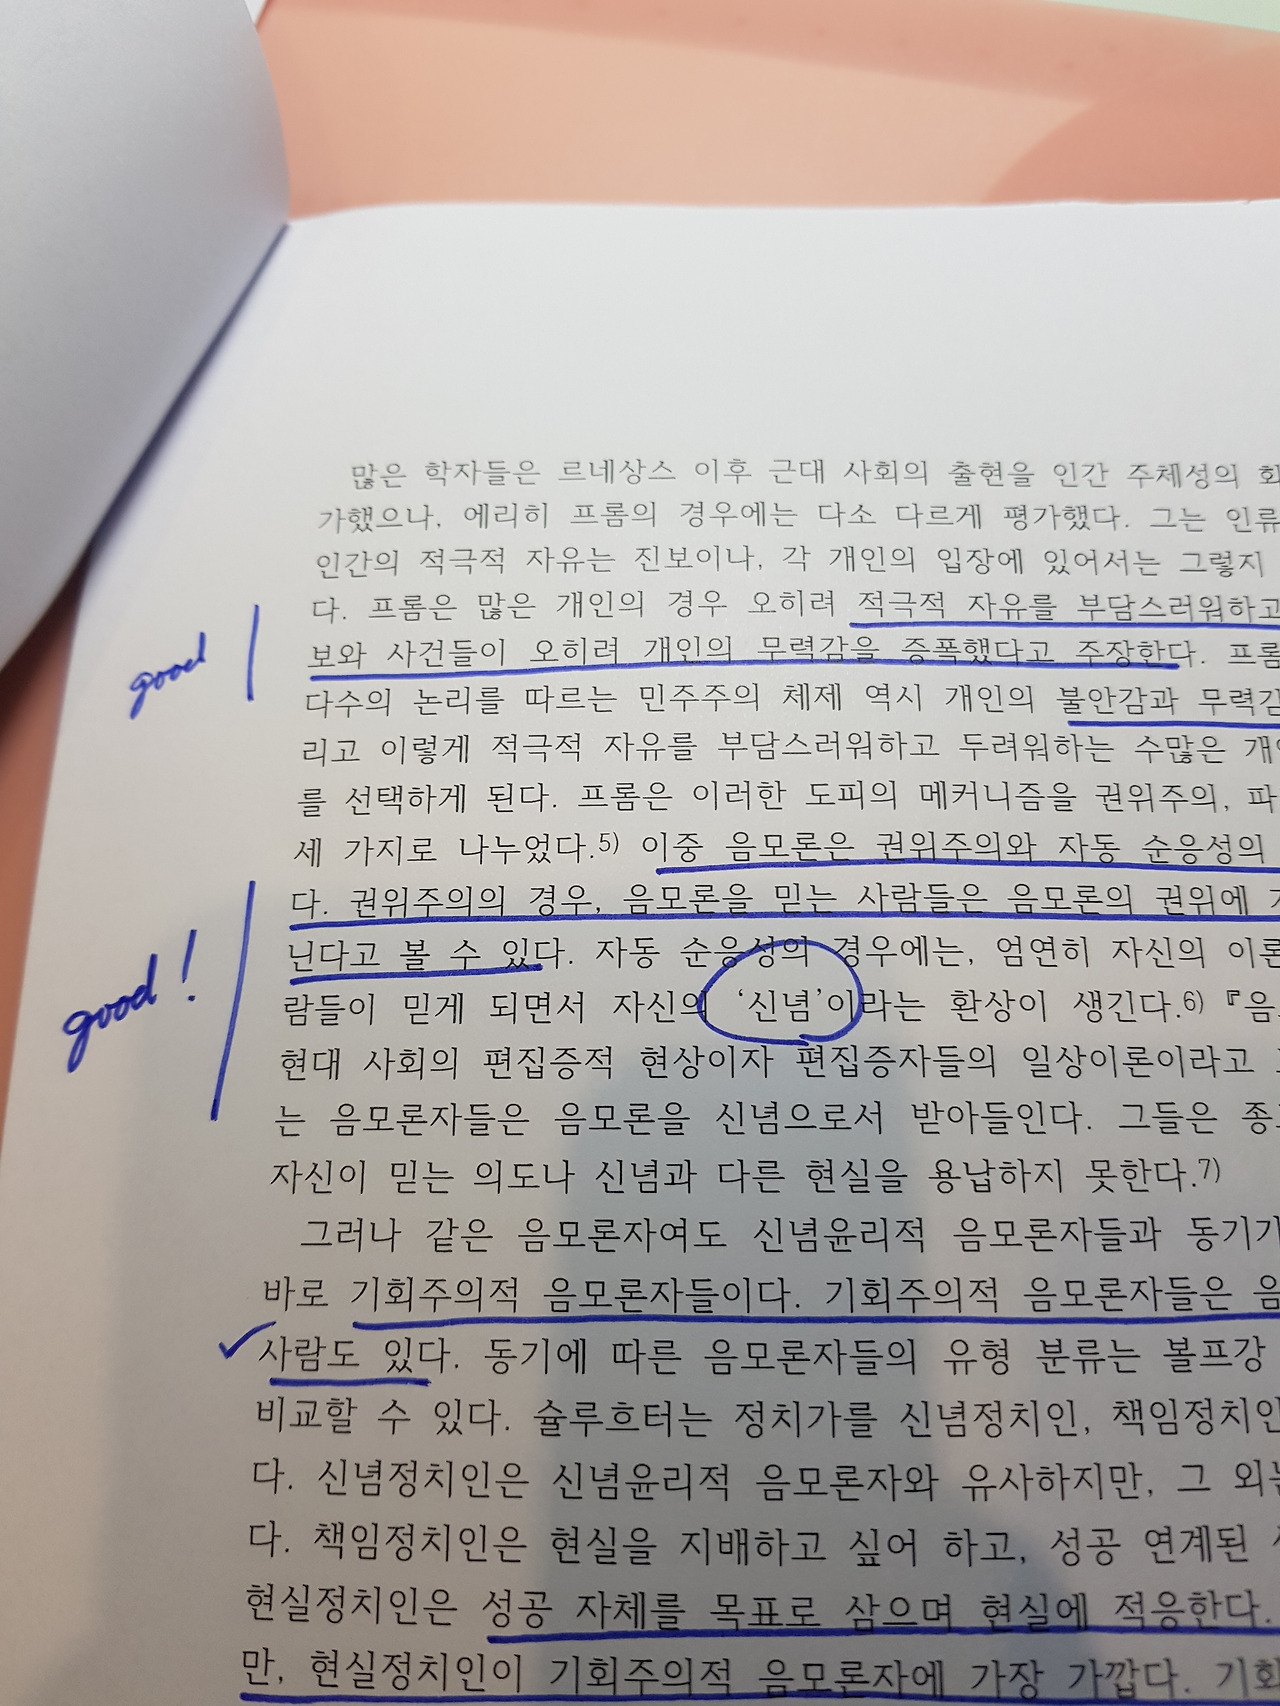 많은 학자들은 르네상스 이후 근대 사회의 출현을 인간 주체성의
가했으나, 에리히 프롬의 경우에는 다소 다르게 평가했다. 그는 인류
인간의 적극적 자유는 진보이나, 각 개인의 입장에 있어서는 그렇지
다. 프롬은 많은 개인의 경우 오히려 적극적 자유를 부담스러워하고
good
보와 사건들이 오히려 개인의 무력감을 증폭했다고 주장한다. 프롬
다수의 논리를 따르는 민주주의 체제 역시 개인의 불안감과 무력감
리고 이렇게 적극적 자유를 부담스러워하고 두려워하는 수많은
를 선택하게 된다. 프롬은 이러한 도피의 메커니즘을 권위주의, 파
세 가지로 나누었다.5) 이중 음모론은 권위주의와 자동 순응성의
다. 권위주의의 경우, 음모론을 믿는 사람들은 음모론의 권위에
닌다고 볼 수 있다. 자동 순응성의 경우에는, 엄연히 자신의 이론
good!
람들이 믿게 되면서 자신의 ‘신념’이라는 환상이 생긴다.6) 『음
현대 사회의 편집증적 현상이자 편집증자들의 일상이론이라고
는 음모론자들은 음모론을 신념으로서 받아들인다. 그들은 종
자신이 믿는 의도나 신념과 다른 현실을 용납하지 못한다.7)
그러나 같은 음모론자여도 신념윤리적 음모론자들과 동기가
바로 기회주의적 음모론자들이다. 기회주의적 음모론자들은 음
사람도 있다. 동기에 따른 음모론자들의 유형 분류는 볼프강
비교할 수 있다. 슐루흐터는 정치가를 신념정치인, 책임정치인
다. 신념정치인은 신념윤리적 음모론자와 유사하지만, 그 외는
다. 책임정치인은 현실을 지배하고 싶어 하고, 성공 연계된
현실정치인은 성공 자체를 목표로 삼으며 현실에 적응한다.
만, 현실정치인이 기회주의적 음모론자에 가장 가깝다. 기회